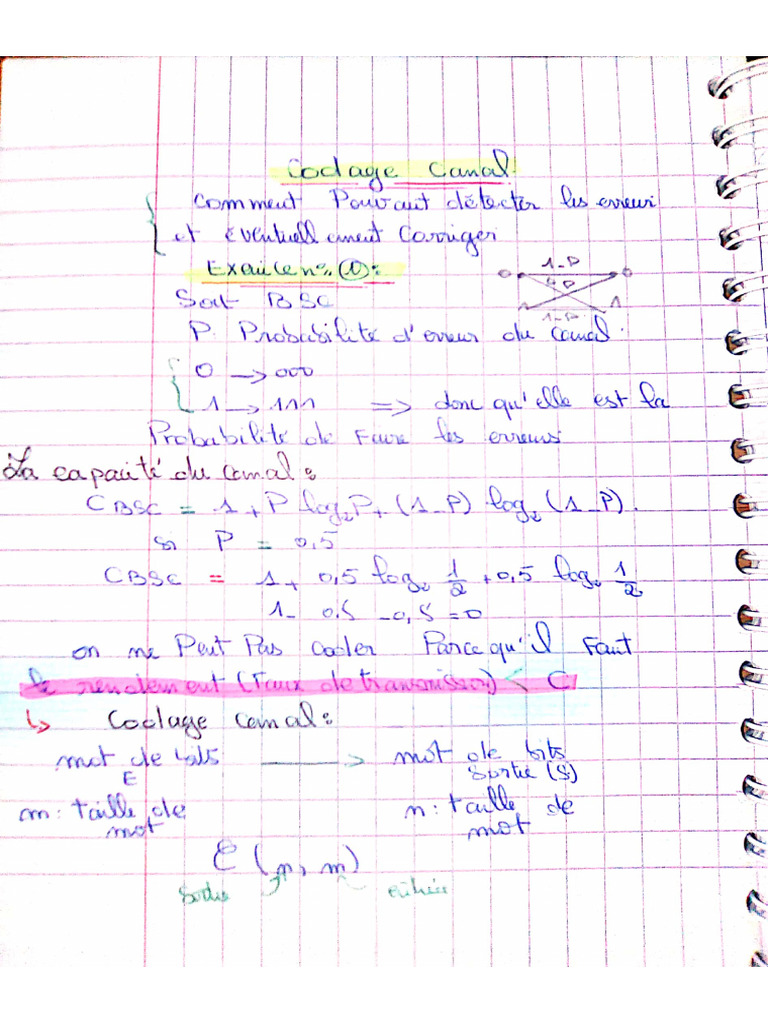 Codage Canal
Comment Pouvant détecter les erreur
et éventuellement Corriger
Exercice n° (1):
Soit BSC
1-P
0 0
P
1 1
1-P
P: Probabilité d'erreur du canal.
0 → 000
1 → 111 => donc qu'elle est la
Probabilité de Faire les erreurs
La capacité du canal:
CBSC = 1 + P log₂ P + (1-P) log₂ (1-P).
si P = 0,5
CBSC = 1 + 0,5 log₂ 1/2 + 0,5 log₂ 1/2
1 - 0.5 - 0,5 = 0
on ne Peut Pas coder Parce qu'il Faut
le rendement (Taux de transmission) < C
↳ Codage Canal:
mot de bits → mot de bits
E Sortie (S)
m: taille de mot n: taille de mot
C (n, m)
Sortie entrée